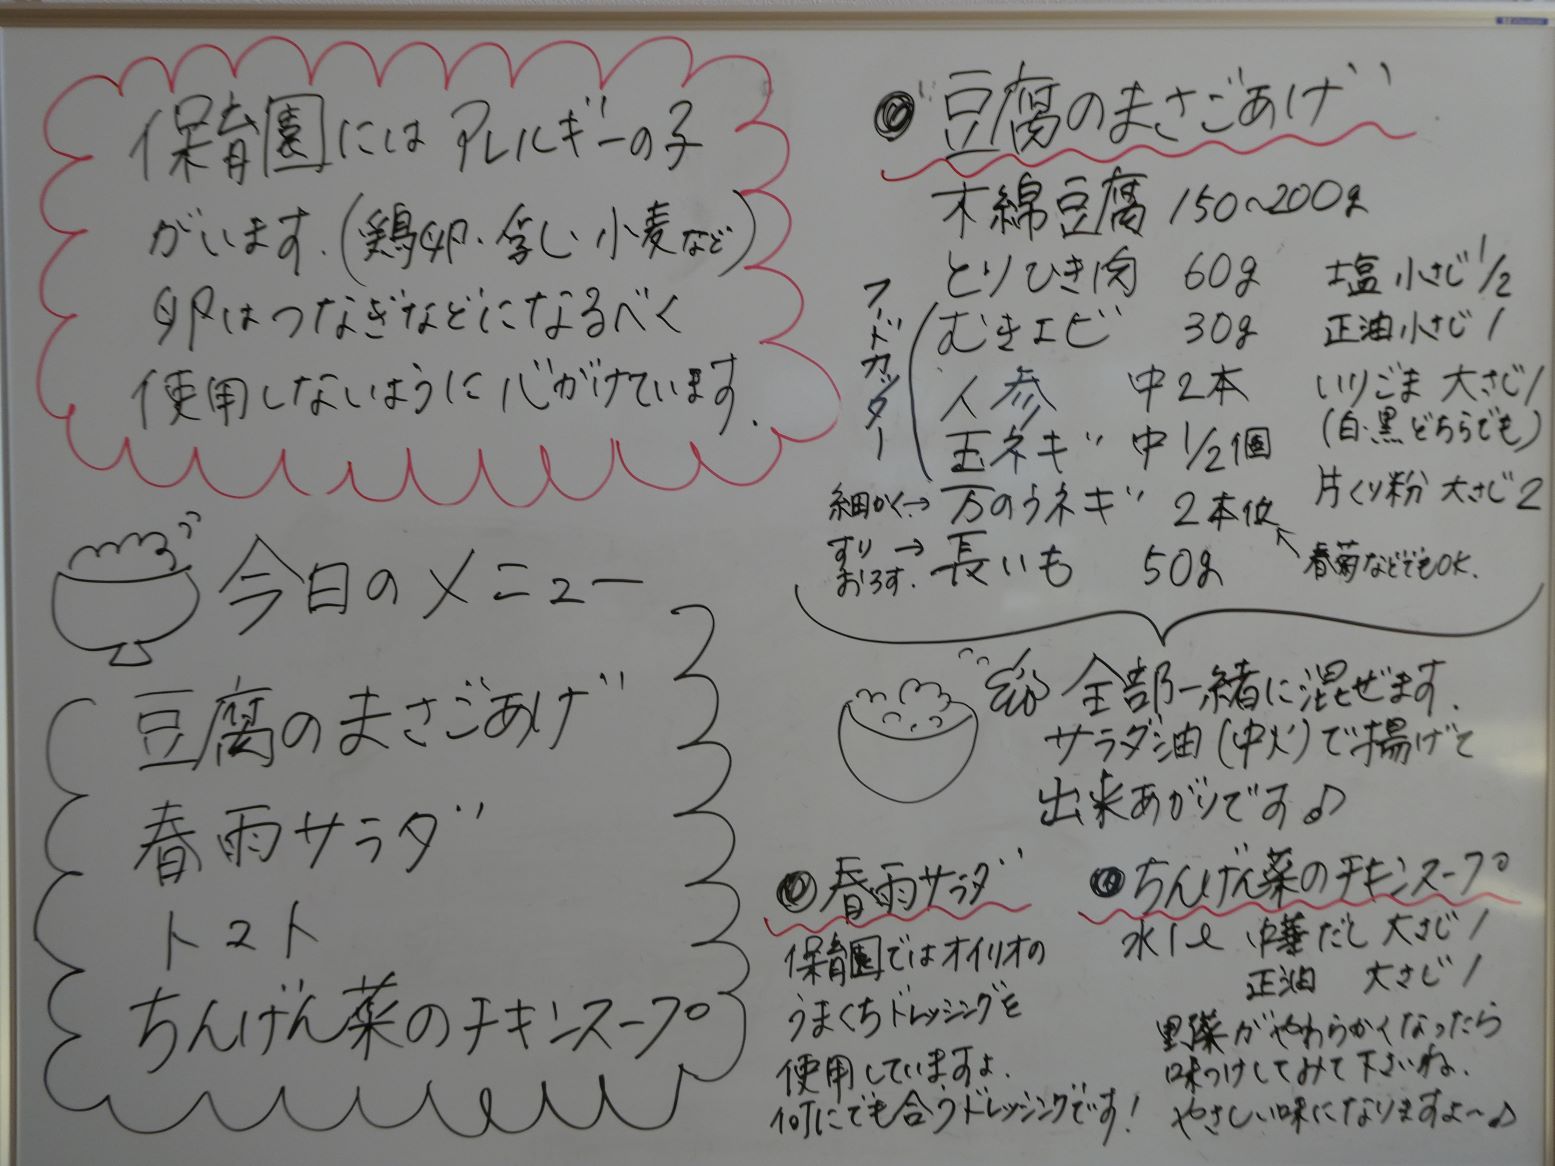 保育園にはアレルギーの子
がいます.(鶏卵・乳し 小麦など)
卵はつなぎなどになるべく
使用しないように心がけています.
今日のメニュー
豆腐のまさごあげ
春雨サラダ
トマト
ちんげん菜のチキンスープ
豆腐のまさごあげ
木綿豆腐 150~200g
とりひき肉 60g
フードカッター
むきエビ 30g
人参 中2本
玉ネギ 中1/2個
細かく→ 万のうネギ 2本位
春菊などでもOK.
すりおろす.→ 長いも 50g
塩 小さじ1/2
正油 小さじ1
いりごま 大さじ1
(白・黒どちらでも)
片くり粉 大さじ2
全部一緒に混ぜます.
サラダ油(中火)で揚げて
出来あがりです♪
春雨サラダ
保育園ではオイリオの
うまくちドレッシングを
使用していますよ.
何にでも合うドレッシングです!
ちんげん菜のチキンスープ
水1ℓ 中華だし 大さじ1
正油 大さじ1
野菜がやわらかくなったら
味つけしてみて下さいね.
やさしい味になりますよ~♪